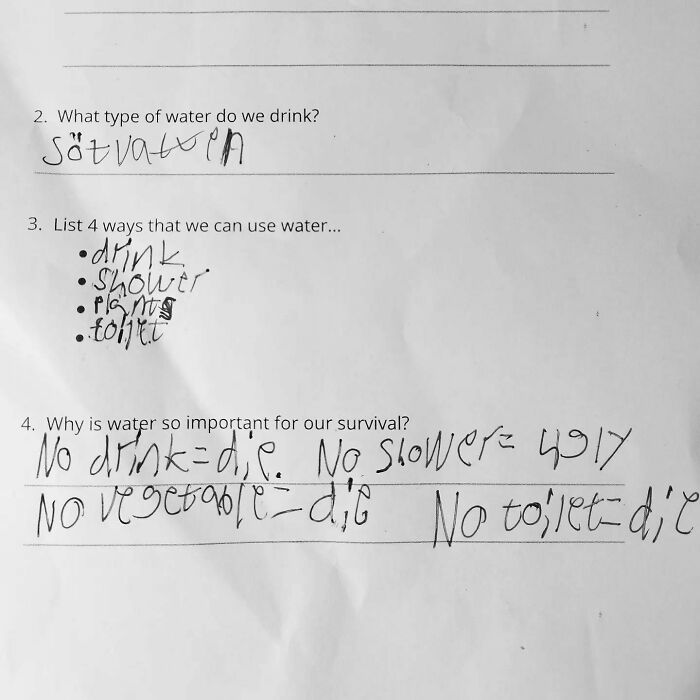 2. What type of water do we drink?
Sötvatten
3. List 4 ways that we can use water...
• drink
• Shower
• Plants
• toilet
4. Why is water so important for our survival?
No drink=die. No Shower= ugly
No vegetable=die No toilet=die